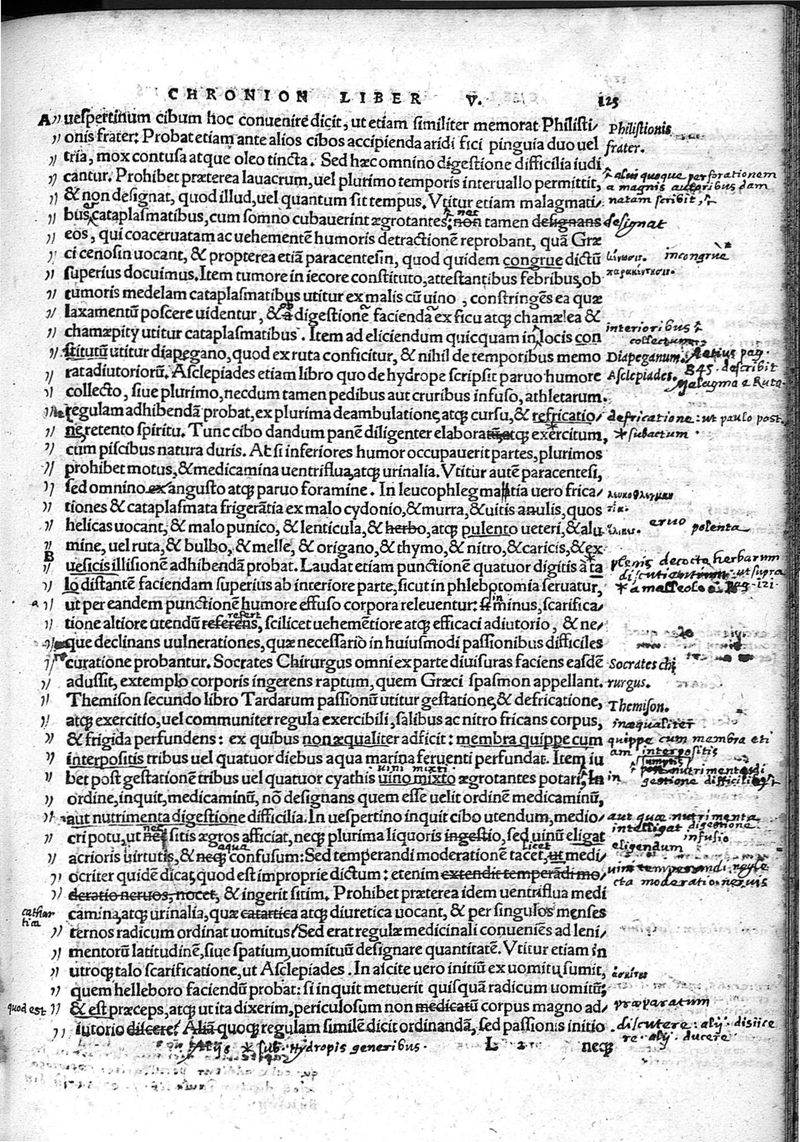 CHRONION LIBER V. 125
A uespertinum cibum hoc conuenire dicit, ut etiam similiter memorat Philisti/
onis frater: Probat etiam ante alios cibos accipienda aridi fici pinguia duo uel
tria, mox contusa atque oleo tincta. Sed hæc omnino digestione difficilia iudi
cantur. Prohibet præterea lauacrum, uel plurimo temporis interuallo permittit,
& non designat, quod illud, uel quantum sit tempus. Vtitur etiam malagmati/
bus, cataplasmatibus, cum somno cubauerint ægrotantes: non tamen designans
eos, qui coaceruatam ac uehementē humoris detractionē reprobant, quā Græ
ci cenosin uocant, & propterea etiā paracentesin, quod quidem congrue dictū
superius docuimus. Item tumore in iecore constituto, attestantibus febribus, ob
tumoris medelam cataplasmatibus utitur ex malis cū uino, constringēs ea quæ
laxamentū poscere uidentur, & digestione facienda ex ficu atq; chamælea &
chamæpity utitur cataplasmatibus. Item ad eliciendum quicquam in locis con
stitutū utitur diapegano, quod ex ruta conficitur, & nihil de temporibus memo
rat adiutoriorū. Asclepiades etiam libro quo de hydrope scripsit paruo humore
collecto, siue plurimo, necdum tamen pedibus aut cruribus infuso, athletarum
regulam adhibendā probat, ex plurima deambulatione, atq; cursu, & refricatio/
ne, retento spiritu. Tunc cibo dandum panē diligenter elaboratū atq; exercitum,
cum piscibus natura duris. At si inferiores humor occupauerit partes, plurimos
prohibet motus, & medicamina uentriflua, atq; urinalia. Vtitur autē paracentesi,
sed omnino ex angusto atq; paruo foramine. In leucophlegmatia uero frica/
tiones & cataplasmata frigerātia ex malo cydonio, & murra, & uitis anulis, quos
helicas uocant, & malo punico, & lenticula, & herbo, atq; pulento ueteri, & alu
mine, uel ruta, & bulbo, & melle, & origano, & thymo, & nitro, & caricis, & ex
B uesicis illisionē adhibendā probat. Laudat etiam punctionē quatuor digitis à ta
lo distantē faciendam superius ab interiore parte, sicut in phlebotomia seruatur,
ut per eandem punctionē humore effuso corpora releuentur: sin minus, scarifica/
tione altiore utendū referens, scilicet uehemētiore atq; efficaci adiutorio, & ne/
que declinans uulnerationes, quæ necessario in huiusmodi passionibus difficiles
curatione probantur. Socrates Chirurgus omni ex parte diuisuras faciens easdē
adussit, extemplo corporis ingerens raptum, quem Græci spasmon appellant.
Themison secundo libro Tardarum passionū utitur gestatione, & defricatione,
atq; exercitio, uel communiter regula exercibili, salibus ac nitro fricans corpus,
& frigida perfundens: ex quibus non æqualiter adficit: membra quippe cum
interpositis tribus uel quatuor diebus aqua marina feruenti perfundat. Item iu
bet post gestationē tribus uel quatuor cyathis uino mixto ægrotantes potari, In
ordine, inquit, medicaminū, nō designans quem esse uelit ordinē medicaminū,
aut nutrimenta digestione difficilia. In uespertino inquit cibo utendum, medio/
cri potu, ut sitis ægros afficiat, neq; plurima liquoris ingestio, sed uinū eligat
acrioris uirtutis, & neq; confusum: Sed temperandi moderationē tacet, ut medi/
ocriter quidē dicat, quod est improprie dictum: etenim extendit temperādi mo/
deratio neruos, nocet, & ingerit sitim. Prohibet præterea idem uentriflua medi
camina, atq; urinalia, quæ catartica atq; diuretica uocant, & per singulos menses
ternos radicum ordinat uomitus. Sed erat regulæ medicinali conueniēs ad leni/
mentorū latitudinē, siue spatium, uomituū designare quantitatē. Vtitur etiam in
utroq; talo scarificatione, ut Asclepiades. In ascite uero initiū ex uomitu sumit,
quem helleboro faciendū probat: si inquit metuerit quisquā radicum uomitū;
& est præceps, atq; ut ita dixerim, periculosum non medicatū corpus magno ad/
iutorio discere. Aliā quoq; regulam similē dicit ordinandā, sed passionis initio
L 2 neq;
Philistionis
frater.
natam scribit,
designat
incongrue
interioribus
collectum
Diapeganum. Aetius pag.
845. describit
Asclepiades. Malagma e Ruta
defricatione: ut paulo post
* subactum.
eruo polenta
ut supra
Socrates chi
rurgus.
Themison.
inæqualiter
quippe cum membra eti
am interpositis
uini mixti
in
aut quæ nutrimenta
intelligat digestione
infusio
eligendum
aqua
licet
cathar
tica
quod est
præparatum
discutere: alij. disiice
re. alij. ducere
* sub. Hydropis generibus.